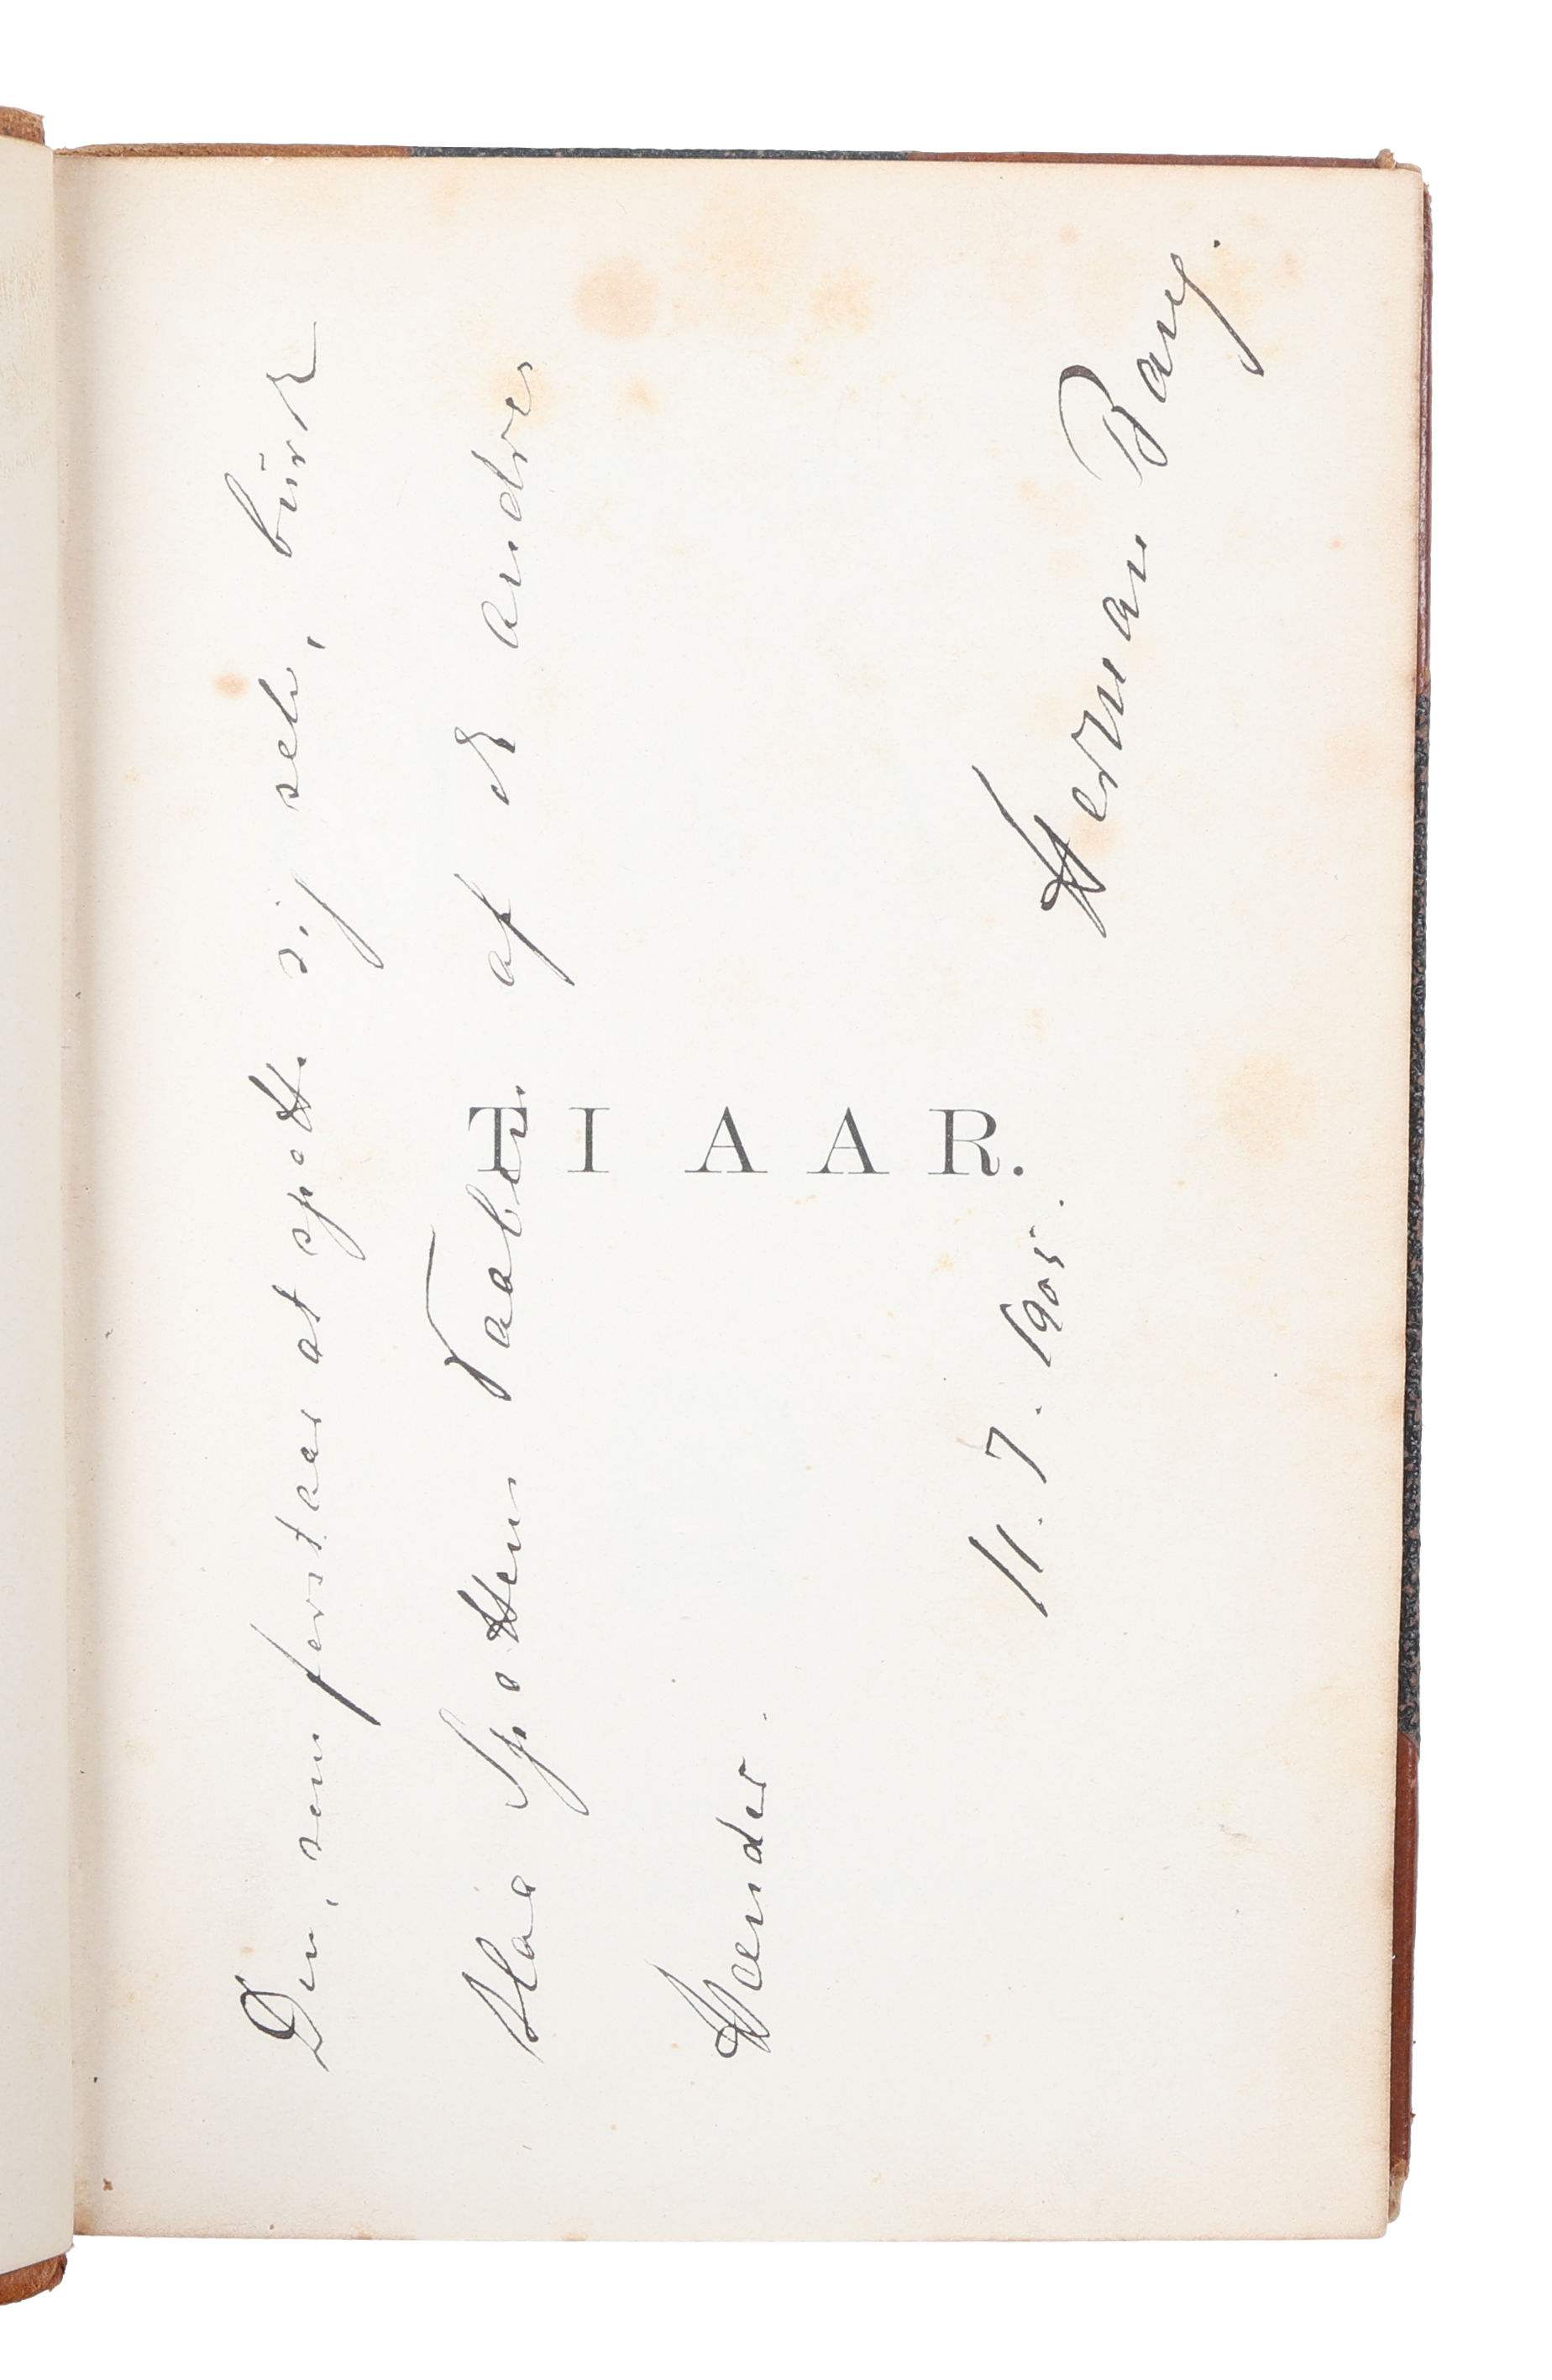 Den, som forstaar at spotte sig selv, burde
slaa Spottens Vaaben af de andres
Hænder.
TI AAR.
11.7.1905.
Herman Bang.